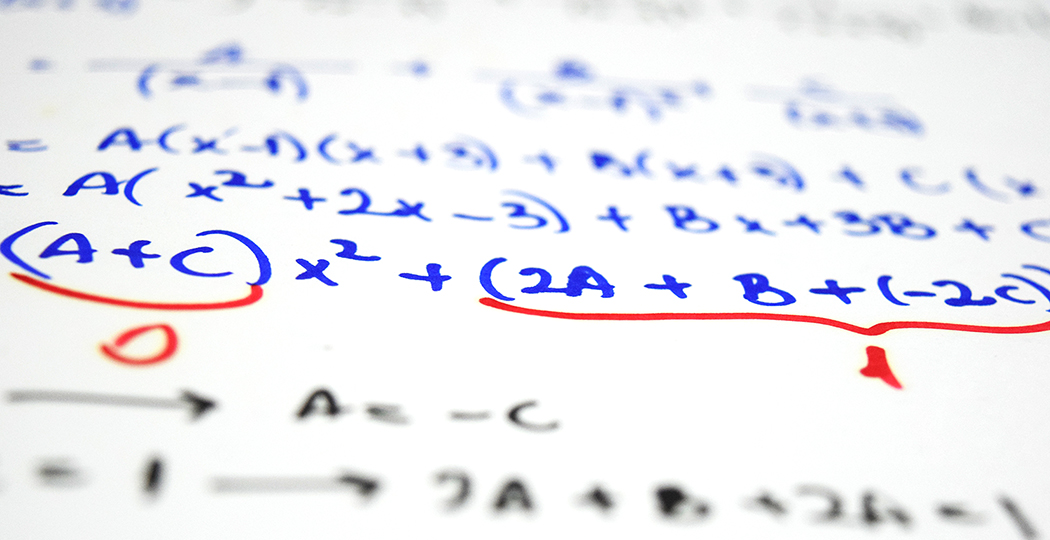 = A/(x-1) + B/(x-1)² +
= A(x-1)(x+3) + B(x+3) + C(x
= A(x²+2x-3) + Bx+3B+C
(A+C)x² + (2A + B+(-2C)
0 1
→ A = -C
= 1 → 2A + B +2A = 1